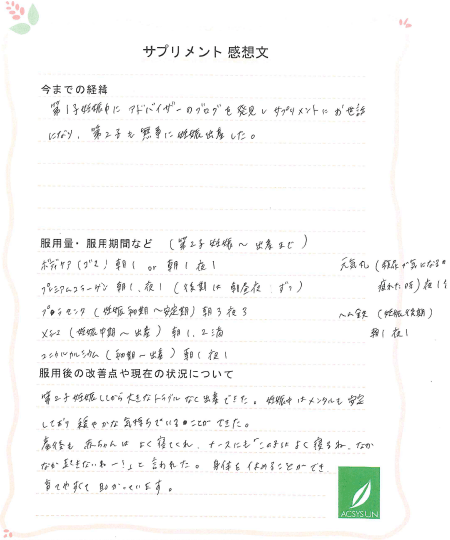 サプリメント 感想文
今までの経緯
第1子妊娠中に アドバイザーのブログを発見し サプリメントにお世話
になり、第2子も 無事に 妊娠出産した。
服用量・服用期間など (第2子妊娠〜出産まで)
朝1 or 朝1 夜1
元気丸
プレミアムコラーゲン 朝1、夜1 (後期は 朝昼夜 1ずつ)
疲れた時) 夜1
プロテセンタ (妊娠初期〜安定期) 朝3 夜3
ヘム鉄 (妊娠後期)
(妊娠中期〜出産) 朝1、2滴
朝1 夜1
ユニカルカルシウム (初期〜出産) 朝1 夜1
服用後の改善点や現在の状況について
第2子妊娠してから 大きなトラブルなく 出産できた。妊娠中はメンタルも安定
しており 穏やかな気持ちでいることができた。
産後も 赤ちゃんは よく寝てくれ、ナースにも「この子は よく寝るね、なか
なか起きないねー!」と言われた。身体を 休めることができ
育てやすくて 助かっています。
ACSYSUN